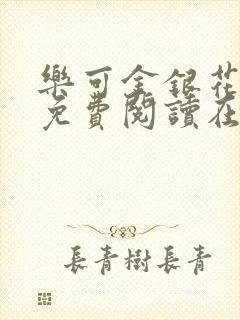 樂可金銀花
免費閱讀在
長青樹長青